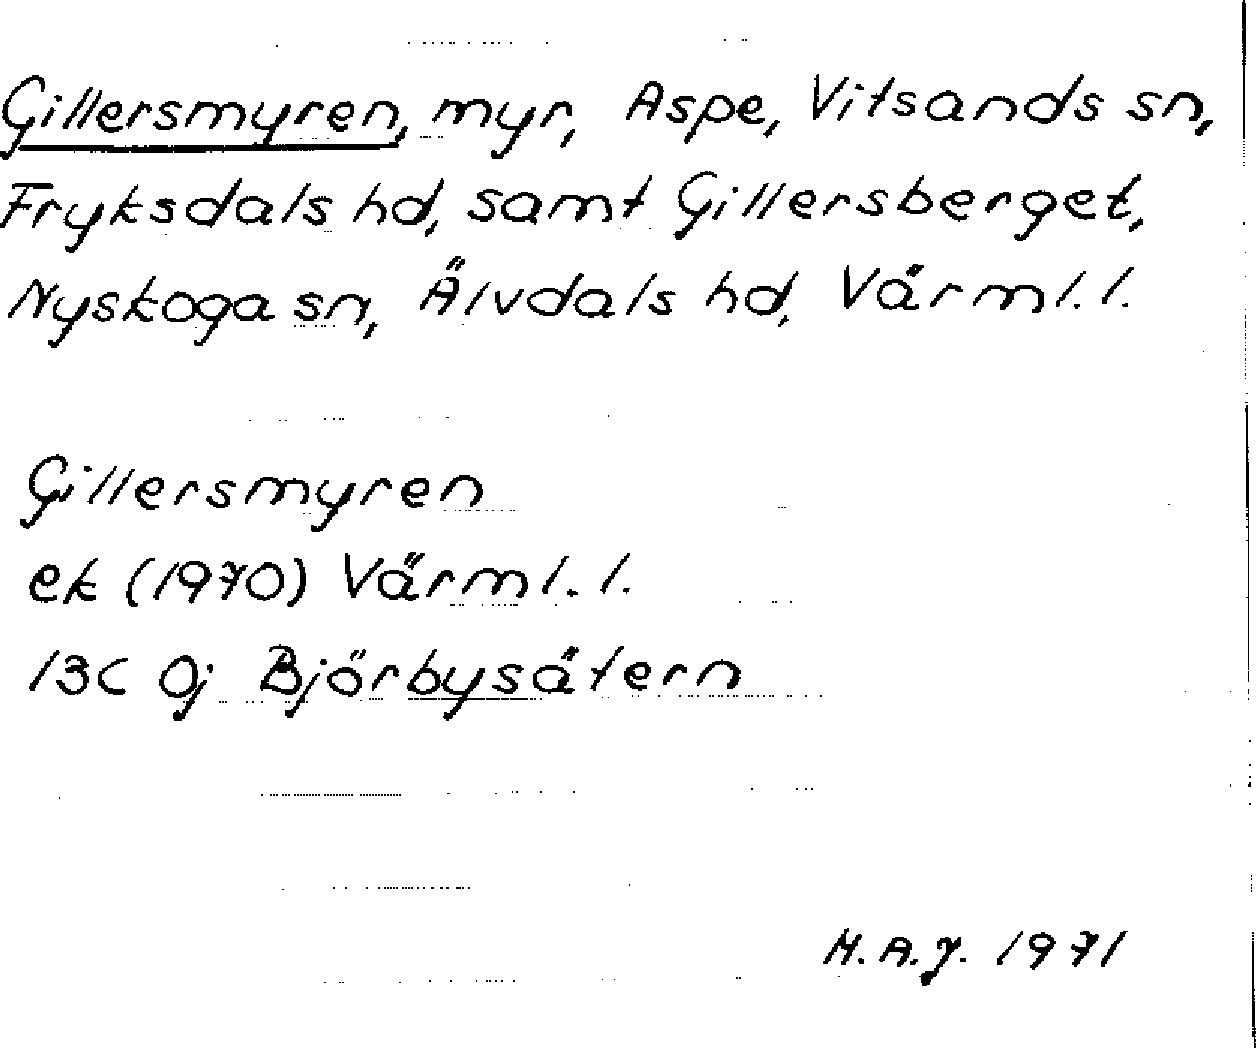 Gillersmyren, myr, Aspe, Vitsands sn,
Fryksdals hd, samt Gillersberget,
Nyskoga sn, Älvdals hd, Värml. l.
Gillersmyren
ek (1970) Värml. l.
13C 0j Björbysätern
H.A.J. 1971